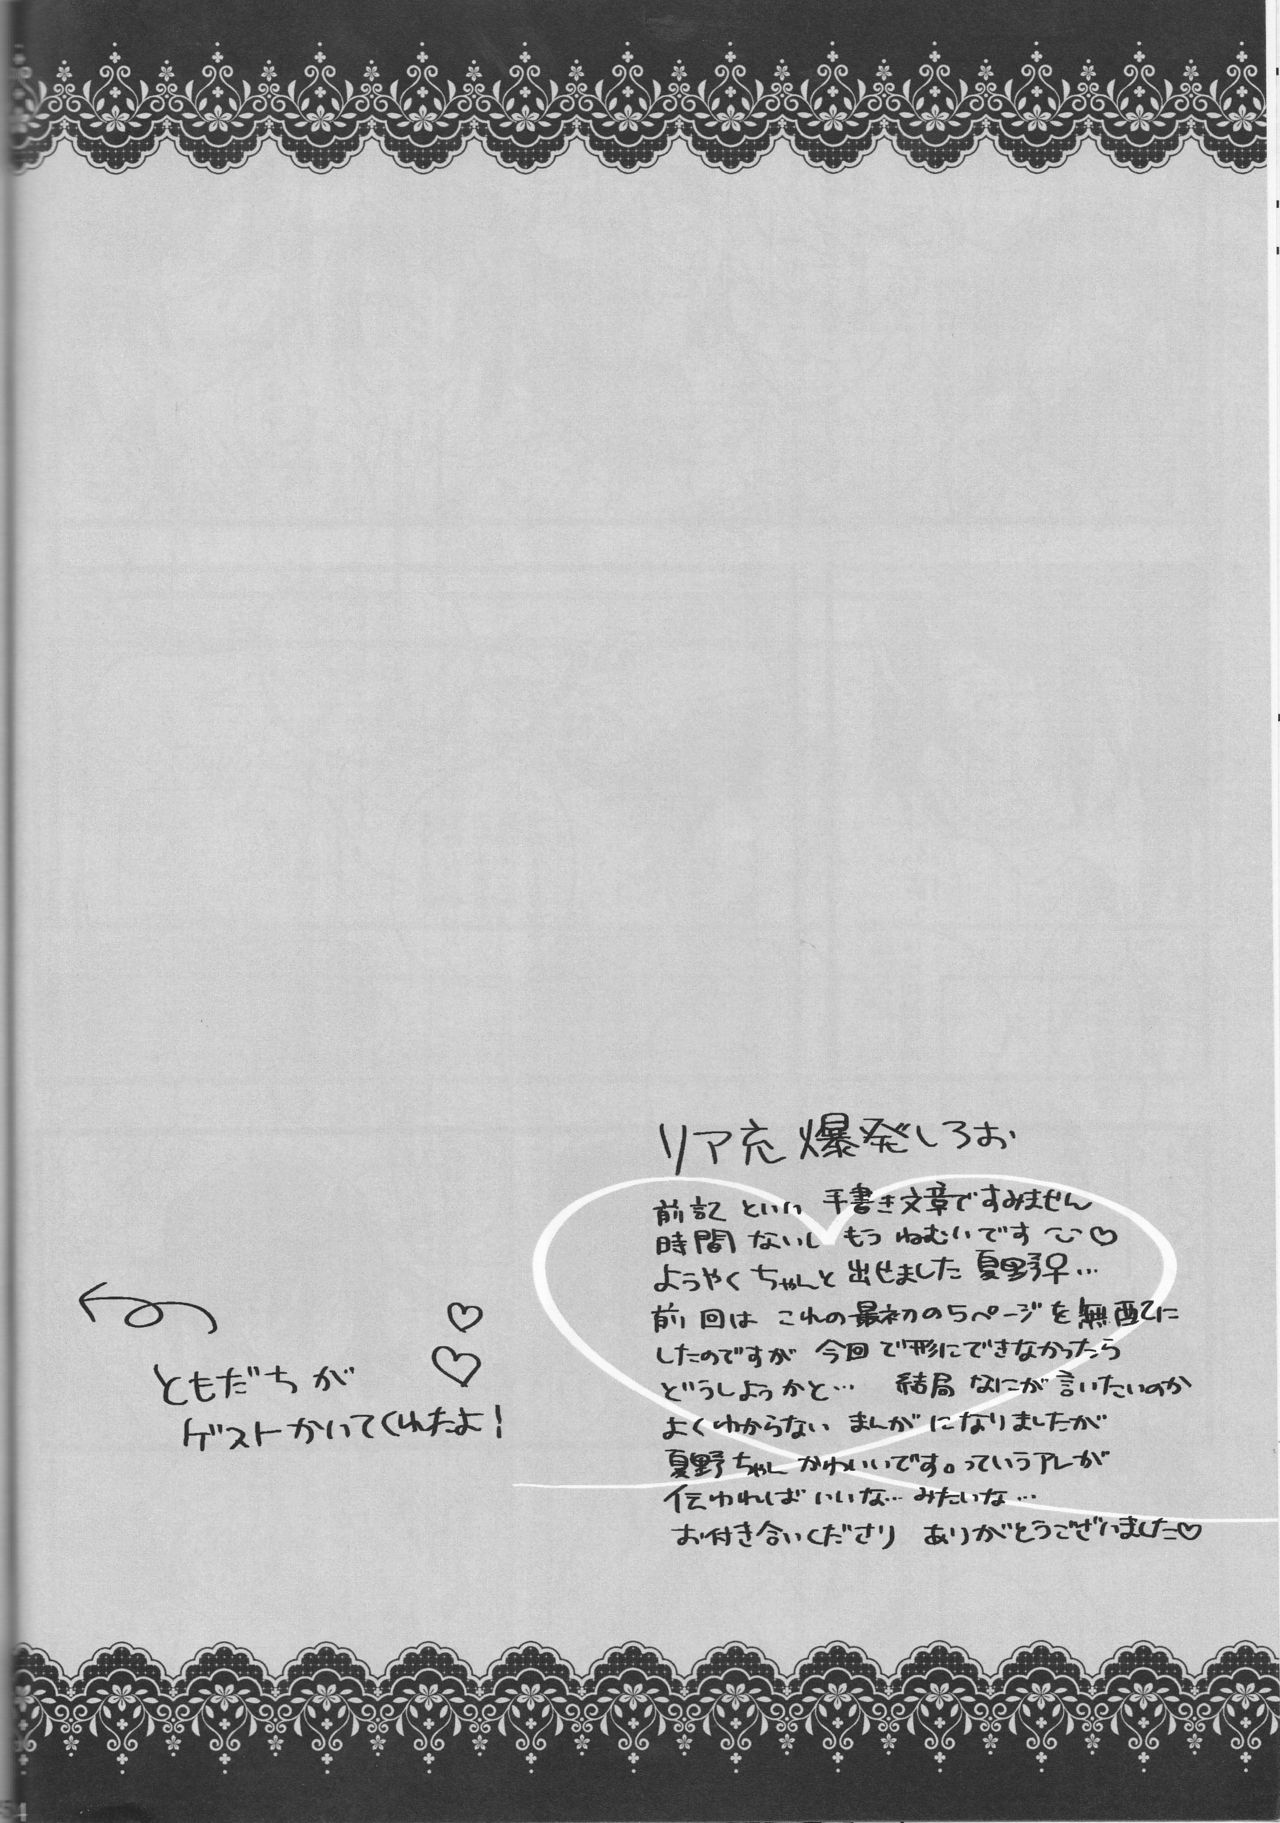 リア充 爆発しろお
前記といい 手書き文章ですみません
時間ないし もう ねむいです ♡
ようやく ちゃんと 出せました 夏野♀…
前回は これの最初の5ページを 無配に
したのですが 今回で形にできなかったら
どうしようかと… 結局 なにが 言いたいのか
よくわからない まんがになりましたが
夏野ちゃん かわいいです。っていうアレが
伝わればいいな… みたいな…
お付き合いくださり ありがとうございました♡
ともだちが
ゲストかいてくれたよ!
54